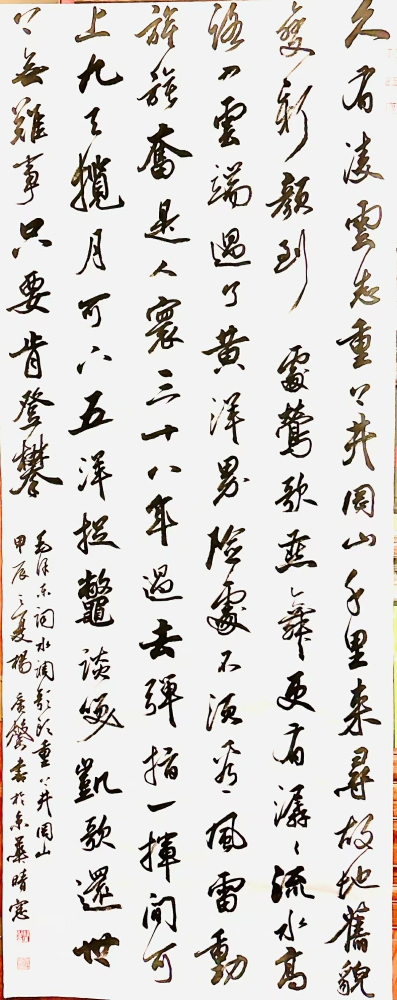 久有凌雲志重上井岡山千里来尋故地舊貌
變新顏到處鶯歌燕舞更有潺々流水高
路入雲端過了黄洋界險處不須看風雷動
旌旗奮是人寰三十八年過去彈指一揮間可
上九天攬月可下五洋捉鱉談笑凱歌還世
上無難事只要肯登攀
毛泽东词水调歌头重上井岡山
甲辰之夏楊書於京華晴窓